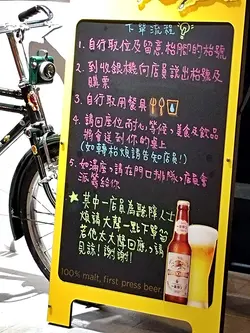 下單流程
1. 自行取位及留意枱腳的枱號
2. 到收銀機向店員說出枱號及
購票
3. 自行取用餐具
4. 請回座位耐心等待，美食及飲品
將會送到你的桌上
(如轉枱煩請告知店員!)
5. 如滿座，請在門口排隊，店員會
派籌給你
★其中一店員為聽障人士
煩請大聲一點下單
若他太大聲回應，請
見諒！謝謝！
100% malt, first press beer